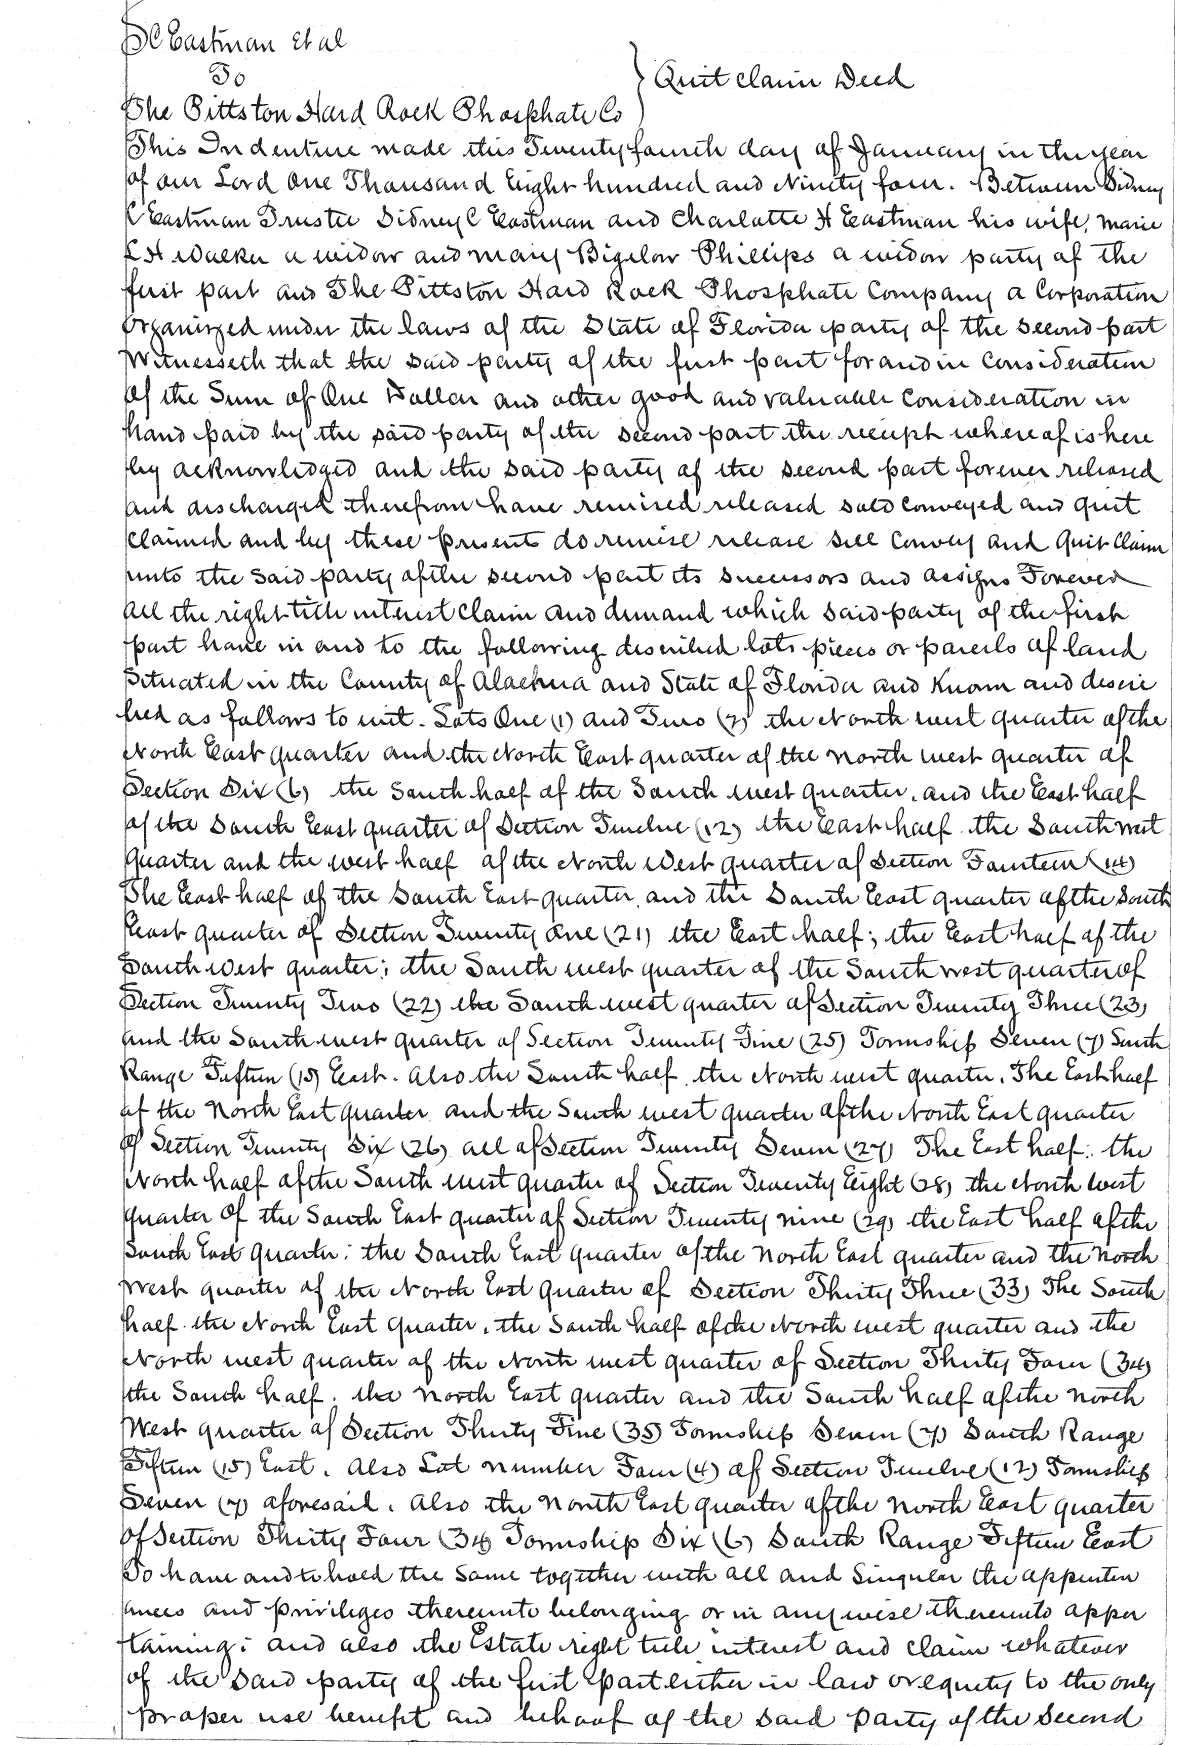 S C Eastman Et al
To
The Pittston Hard Rock Phosphate Co } Quit Claim Deed
This Indenture made this Twenty fourth day of January in the year
of our Lord One Thousand Eight hundred and Ninity four. Between Sidney
C Eastman Trustee Sidney C Eastman and Charlotte H Eastman his wife, Marie
L H Walker a widow and Mary Bigelow Phillips a widow party of the
first part and The Pittston Hard Rock Phosphate Company a Corporation
Organized under the laws of the State of Florida party of the second part
Witnesseth that the said party of the first part for and in consideration
of the Sum of One Dollar and other good and valuable consideration in
hand paid by the said party of the second part the receipt whereof is here
by acknowledged and the said party of the second part forever released
and discharged therefrom have remised released sold conveyed and quit
claimed and by these presents do remise release sell convey and Quit Claim
unto the said party of the second part its successors and assigns Forever
all the right title interest claim and demand which said party of the first
part have in and to the following described lots pieces or parcels of land
situated in the County of Alachua and State of Florida and Known and descri
bed as follows to wit. Lots One (1) and Two (2) the North west quarter of the
North East quarter and the North East quarter of the north west quarter of
Section Six (6) the South half of the South west quarter, and the East half
of the South East quarter of Section Twelve (12) the East half the South west
quarter and the west half of the North West quarter of Section Fourteen (14)
The East half of the South East quarter, and the South East quarter of the South
East quarter of Section Twenty One (21) the East half; the East half of the
South West quarter; the South west quarter of the South west quarter of
Section Twenty Two (22) the South west quarter of Section Twenty Three (23)
and the South west quarter of Section Twenty Five (25) Township Seven (7) South
Range Fifteen (15) East. Also the South half the North west quarter, The East half
of the North East quarter and the South west quarter of the North East quarter
of Section Twenty Six (26) all of Section Twenty Seven (27) The East half; the
North half of the South west quarter of Section Twenty Eight (28) the North west
quarter of the South East quarter of Section Twenty nine (29) the East half of the
South East quarter; the South East quarter of the North East quarter and the North
West quarter of the North East quarter of Section Thirty Three (33) The South
half the North East quarter, the South half of the North west quarter and the
North west quarter of the North west quarter of Section Thirty Four (34)
the South half, the North East quarter and the South half of the North
West quarter of Section Thirty Five (35) Township Seven (7) South Range
Fifteen (15) East. Also Lot number Four (4) of Section Twelve (12) Township
Seven (7) aforesaid. Also the North East quarter of the North East quarter
of Section Thirty Four (34) Township Six (6) South Range Fifteen East
To have and to hold the same together with all and singular the appurten
ances and privileges thereunto belonging or in any wise thereunto apper
taining; and also the Estate right title interest and claim whatever
of the said party of the first part either in law or equity to the only
proper use benefit and behoof of the said party of the second